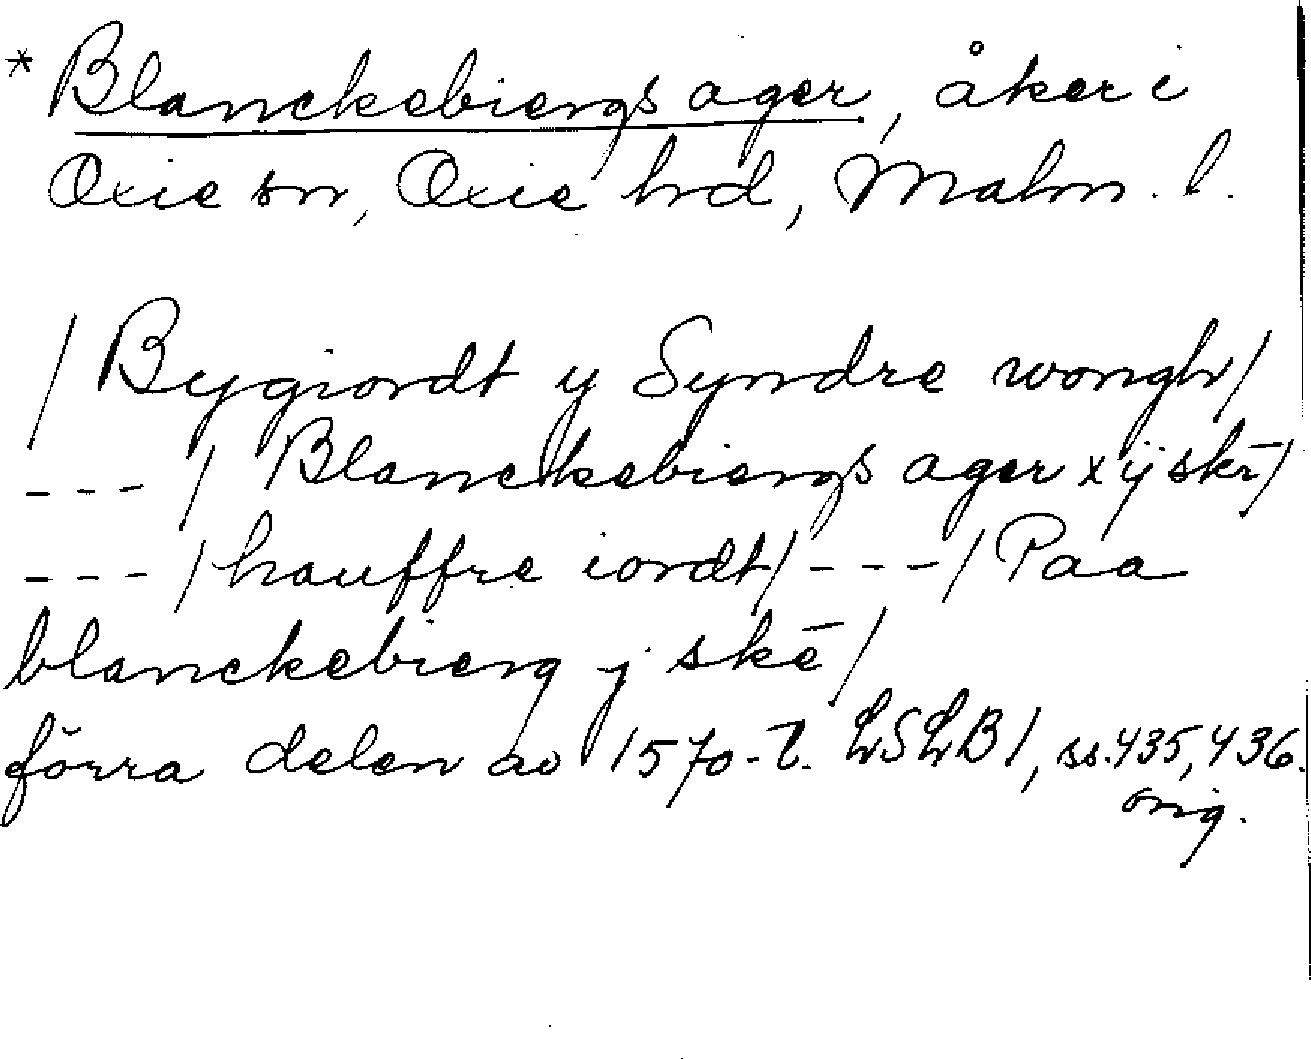 * Blanckebiergs ager, åker i
Oxie sn, Oxie hd, Malm. l.
/ Bygiordt y Syndre wongh /
--- / Blanckebiergs ager x ij skr̄ /
--- / hauffre iordt / --- / Paa
blanckebierg j skē /
förra delen av 1570-t. LSLB 1, ss. 435, 436.
orig.